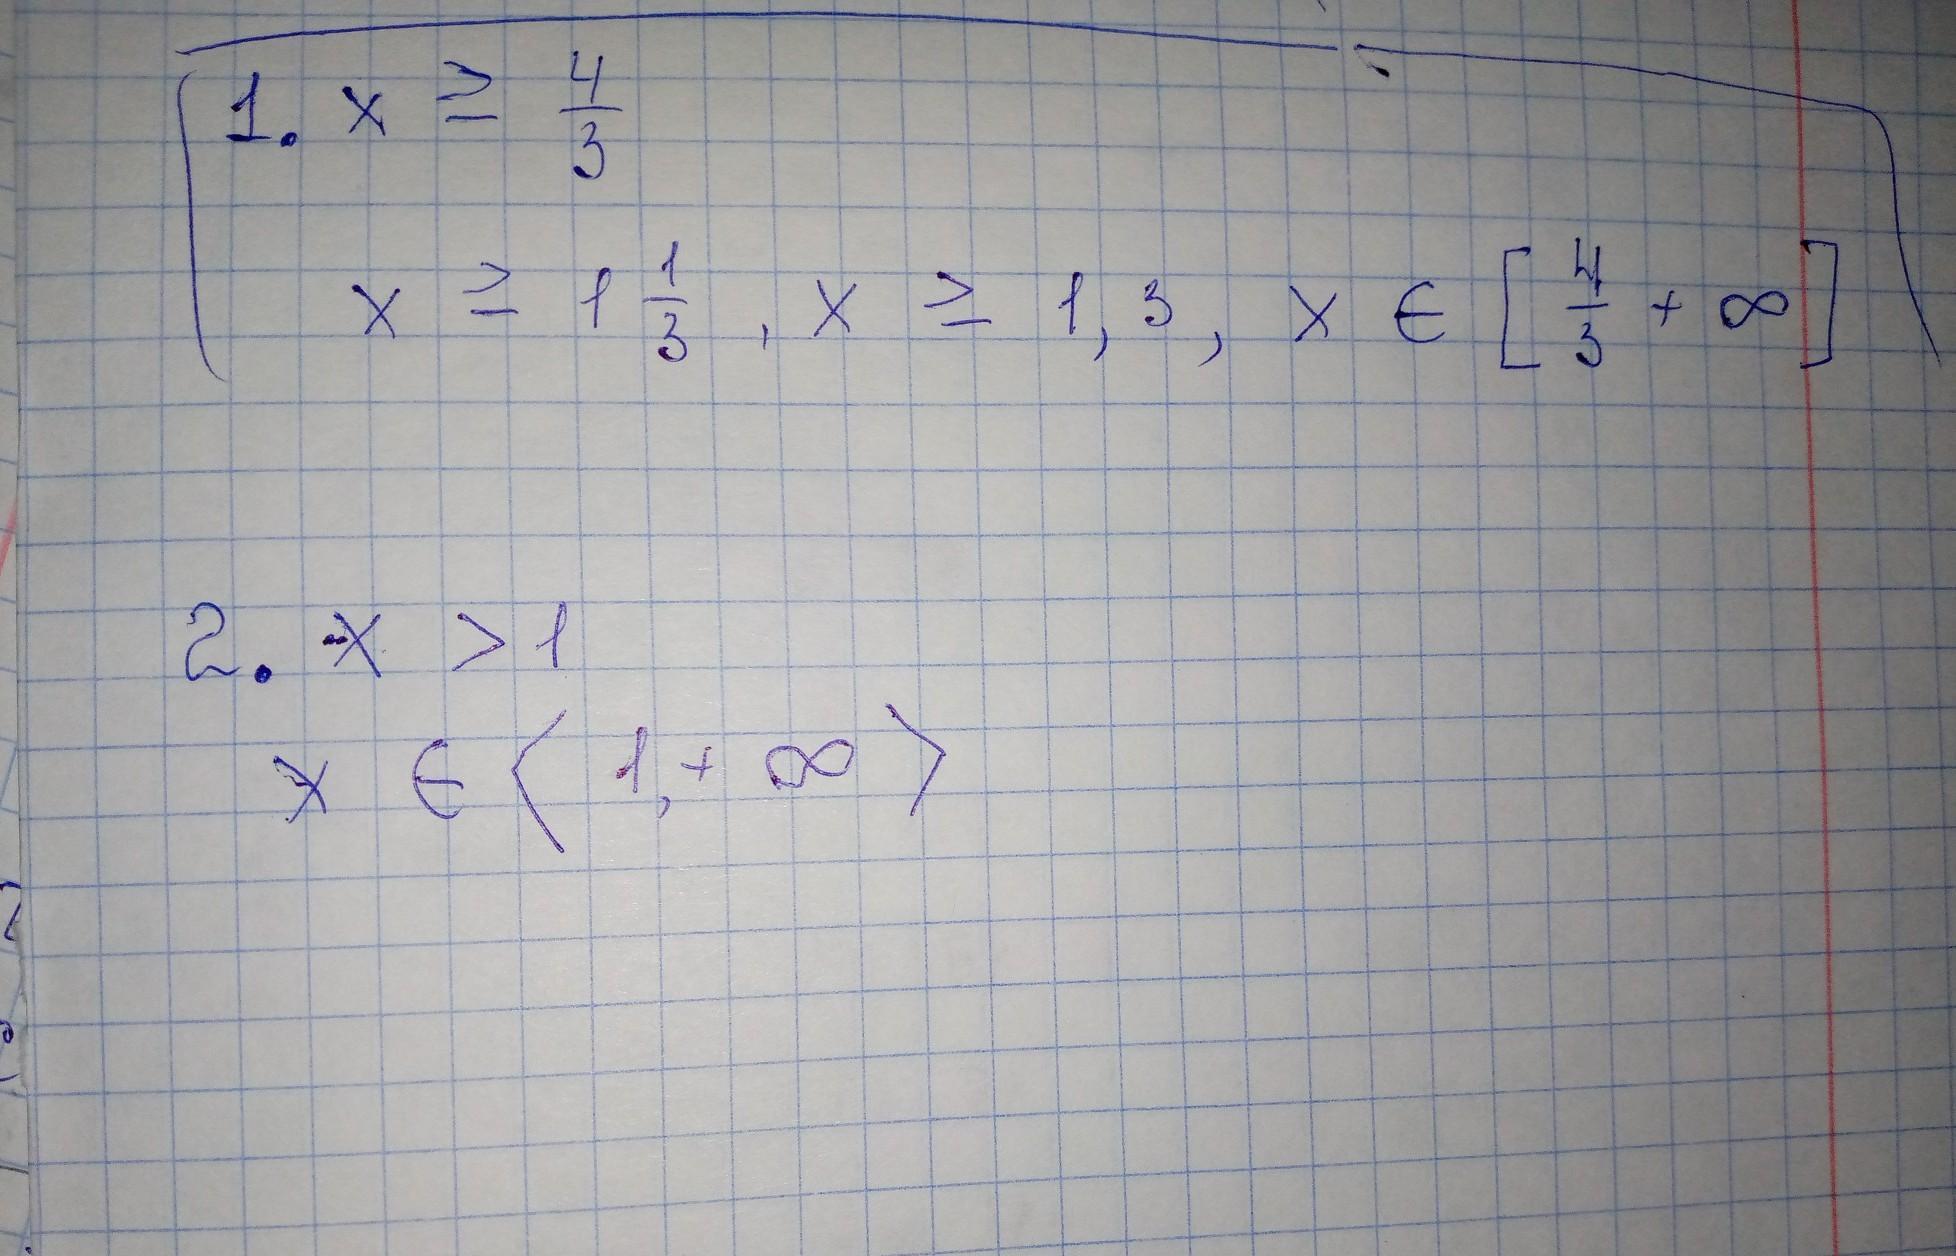 1. x ≥ 4/3
x ≥ 1 1/3, x ≥ 1,3, x ∈ [4/3 + ∞]
2. x > 1
x ∈ ⟨1, + ∞⟩